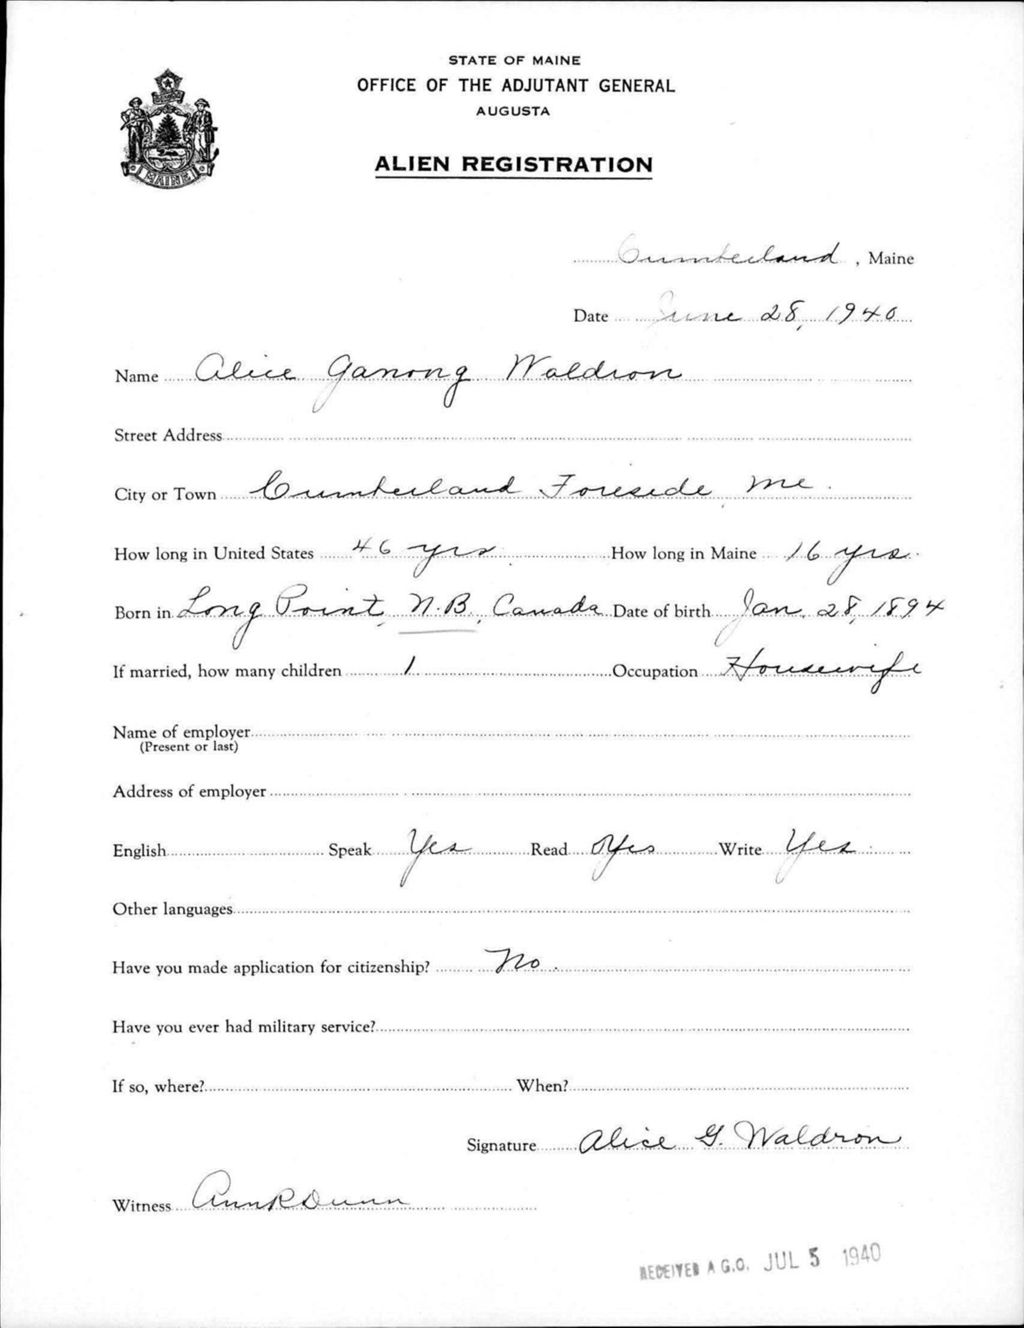 STATE OF MAINE
OFFICE OF THE ADJUTANT GENERAL
AUGUSTA
ALIEN REGISTRATION
MAINE
Cumberland, Maine
Date June 28, 1940
Name Alice Ganong Waldron
Street Address
City or Town Cumberland Foreside Me.
How long in United States 46 yrs. How long in Maine 16 yrs.
Born in Long Point, N.B., Canada Date of birth Jan. 28, 1894
If married, how many children 1 Occupation Housewife
Name of employer
(Present or last)
Address of employer
English Speak Yes Read Yes Write Yes
Other languages
Have you made application for citizenship? No.
Have you ever had military service?
If so, where? When?
Signature Alice G. Waldron
Witness Ann R Dunn
RECEIVED A.G.O. JUL 5 1940